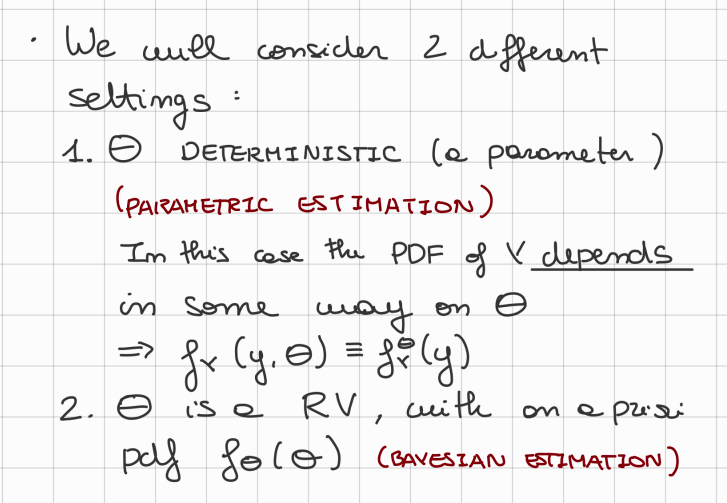 · We will consider 2 different
settings :
1. Θ DETERMINISTIC (a parameter)
(PARAMETRIC ESTIMATION)
In this case the PDF of Y depends
in some way on Θ
⇒ f_Y (y, Θ) ≡ f_Y^Θ (y)
2. Θ is a RV, with an a priori
pdf f_Θ(Θ) (BAYESIAN ESTIMATION)